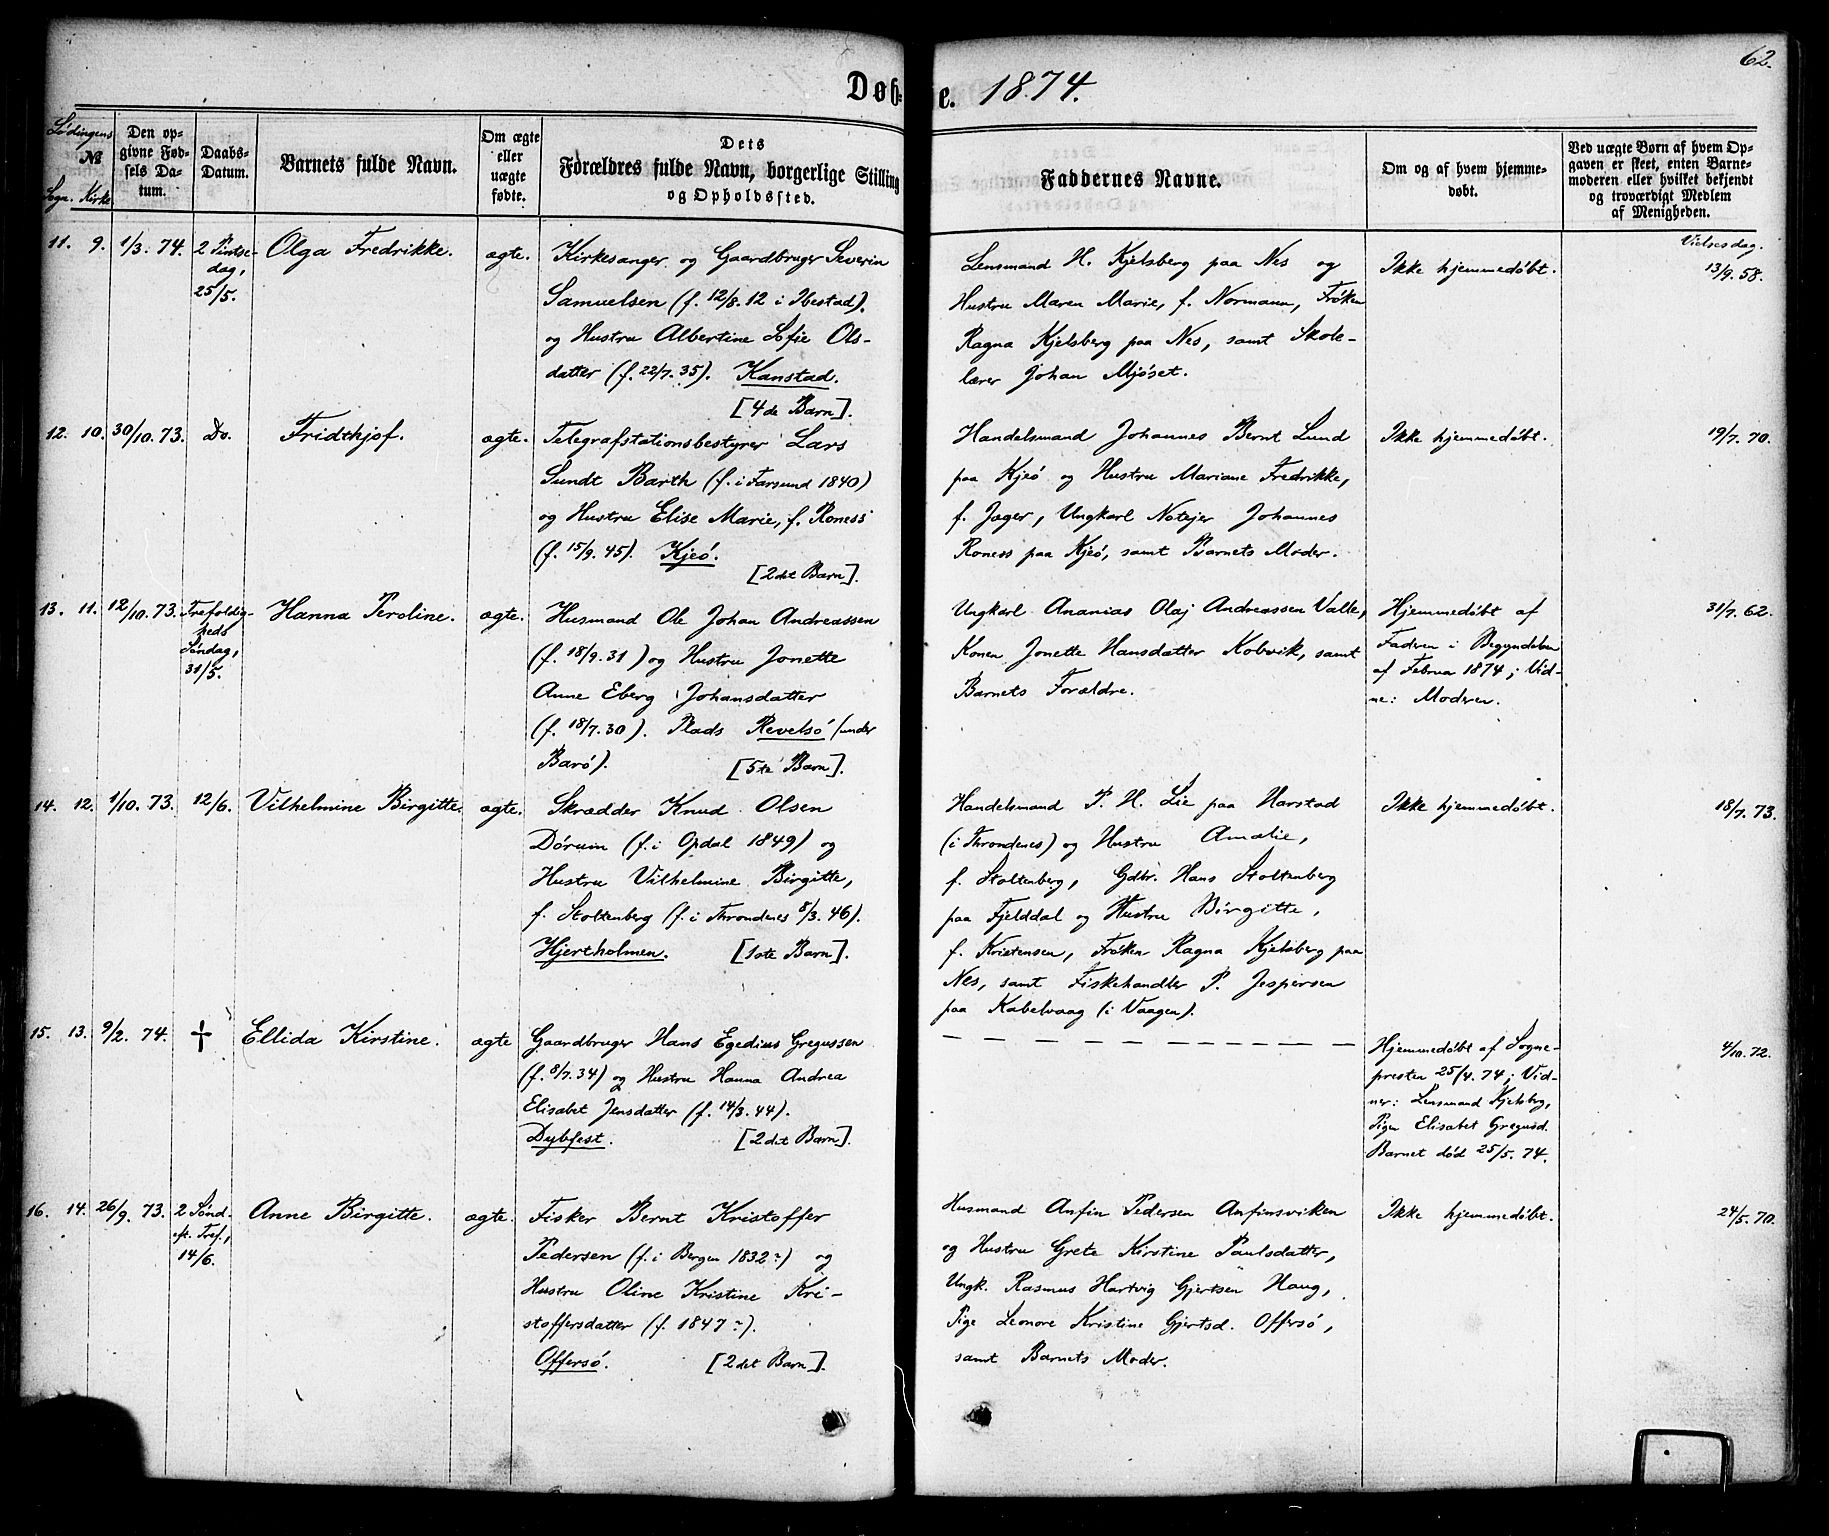 62.
Døb- e. 1874.
Lødingens
№
Sogn. Kirke
Den op-
givne Fød-
sels Da-
tum.
Daabs-
Datum.
Barnets fulde Navn.
Om ægte
eller
uægte
fødte.
Dets
Forældres fulde Navn, borgerlige Stilling
og Opholdssted.
Faddernes Navne.
Om og af hvem hjemme-
døbt.
Ved uægte Børn af hvem Op-
gaven er skeet, enten Barne-
moderen eller hvilket bekjendt
og troværdigt Medlem
af Menigheden.
11. 9. 1/3. 74.
2 Pintse-
dag,
25/5.
Olga Fredrikke.
ægte.
Kirkesanger og Gaardbruger Severin
Samuelsen (f. 12/8. 12 i Ibestad).
og Hustru Albertine Sofie Ols-
datter (f. 22/7. 35). Kanstad.
[4de Barn].
Lensmand H. Kjelsberg paa Nes og
Hustru Maren Marie, f. Normann, Frøken
Ragna Kjelsberg paa Nes, samt Skole-
lærer Johan Mjøset.
Ikke hjemmedøbt.
Vielsesdag.
13/9. 58.
12. 10. 30/10. 73.
Do.
Fridthjof.
ægte.
Telegrafstationsbestyrer Lars
Sundt Barth (f. i Farsund 1840)
og Hustru Elise Marie, f. Roness
(f. 15/9. 45). Kjeø.
[2det Barn].
Handelsmand Johannes Bernt Lund
paa Kjeø og Hustru Mariane Fredrikke,
f. Jæger, Ungkarl Notejer Johannes
Roness paa Kjeø, samt Barnets Moder.
Ikke hjemmedøbt.
19/7. 70.
13. 11. 12/10. 73.
Trefoldig-
heds
Søndag,
31/5.
Hanna Peroline.
ægte.
Husmand Ole Johan Andreassen
(f. 18/9. 31) og Hustru Jonette
Anne Eberg Johansdatter
(f. 18/7. 30). Plads Revelsø (under
Barø).
[5te Barn].
Ungkarl Ananias Olaj Andreassen Valle,
Konen Jonette Hansdatter Kobvik, samt
Barnets Forældre.
Hjemmedøbt af
Faderen i Begyndelsen
af Februar 1874; Vid-
ne: Moderen.
31/7. 62.
14. 12. 1/10. 73.
12/6.
Vilhelmine Birgitte.
ægte.
Skrædder Knud Olsen
Dørum (f. i Opdal 1849) og
Hustru Vilhelmine Birgitte,
f. Stoltenberg (f. i Throndenes 8/3. 46).
Hjertholmen.
[1ste Barn].
Handelsmand P. H. Lie paa Harstad
(i Throndenes) og Hustru Amalie,
f. Stoltenberg, Gdbr. Hans Stoltenberg
paa Fjelddal og Hustru Birgitte,
f. Kristensen, Frøken Ragna Kjelsberg paa
Nes, samt Fiskehandler P. Jespersen
paa Kabelvaag (i Vaagen).
Ikke hjemmedøbt.
18/7. 73.
15. 13. 9/2. 74.
†
Ellida Kirstine.
ægte
Gaardbruger Hans Egedius Gregussen
(f. 8/7. 34) og Hustru Hanna Andrea
Elisabet Jensdatter (f. 14/3. 44).
Dybfest.
[2det Barn].
— — — — — — — — — — — —
Hjemmedøbt af Sogne-
presten 25/4. 74; Vid-
ner: Lensmand Kjelsberg,
Pigen Elisabet Gregusd.
Barnet død 25/5. 74.
4/10. 72.
16. 14. 26/9. 73.
2 Sønd.
eft. Tref.,
14/6.
Anne Birgitte.
ægte.
Fisker Bernt Kristoffer
Pedersen (f. i Bergen 1832?) og
Hustru Oline Kristine Kri-
stoffersdatter (f. 1847?).
Offersø.
[2det Barn].
Husmand Anfin Pedersen Anfinsviken
og Hustru Grete Kirstine Paulsdatter,
Ungk. Rasmus Hartvig Gjertsen Haug,
Pige Leonore Kristine Gjertsd. Offersø,
samt Barnets Moder.
Ikke hjemmedøbt.
24/5. 70.